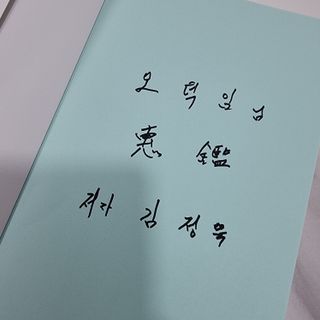 오덕일님
惠鑑
저자 김정욱